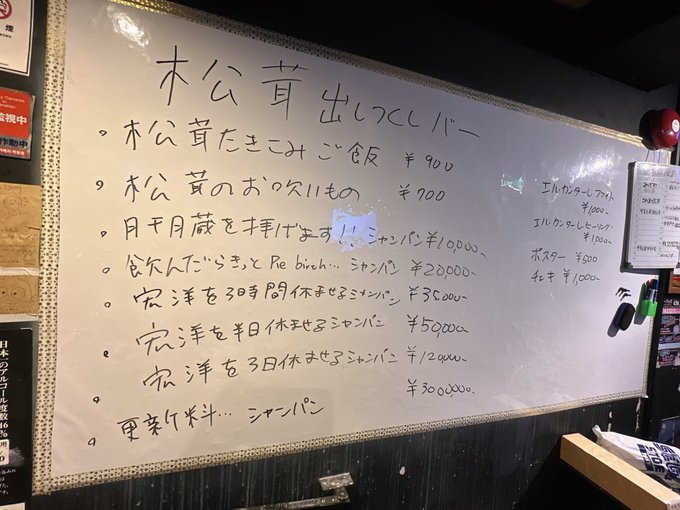 松茸出しつくしバー
松茸たきこみご飯 ¥900
松茸のお吹いもの ¥700
肝臓を捧げます!! シャンパン ¥10,000-
飲んだらきっとRe birth… シャンパン ¥20,000-
宏洋を3時間休ませるシャンパン ¥35,000-
宏洋を半日休ませるシャンパン ¥50,000-
宏洋を3日休ませるシャンパン ¥120,000-
更新料… シャンパン ¥3000,000-
エルカンターレファイト
¥1000-
エルカンターレヒーリング
¥1000-
ポスター ¥500
チェキ ¥1,000-
監視中
作動中
日本一のアルコール度数